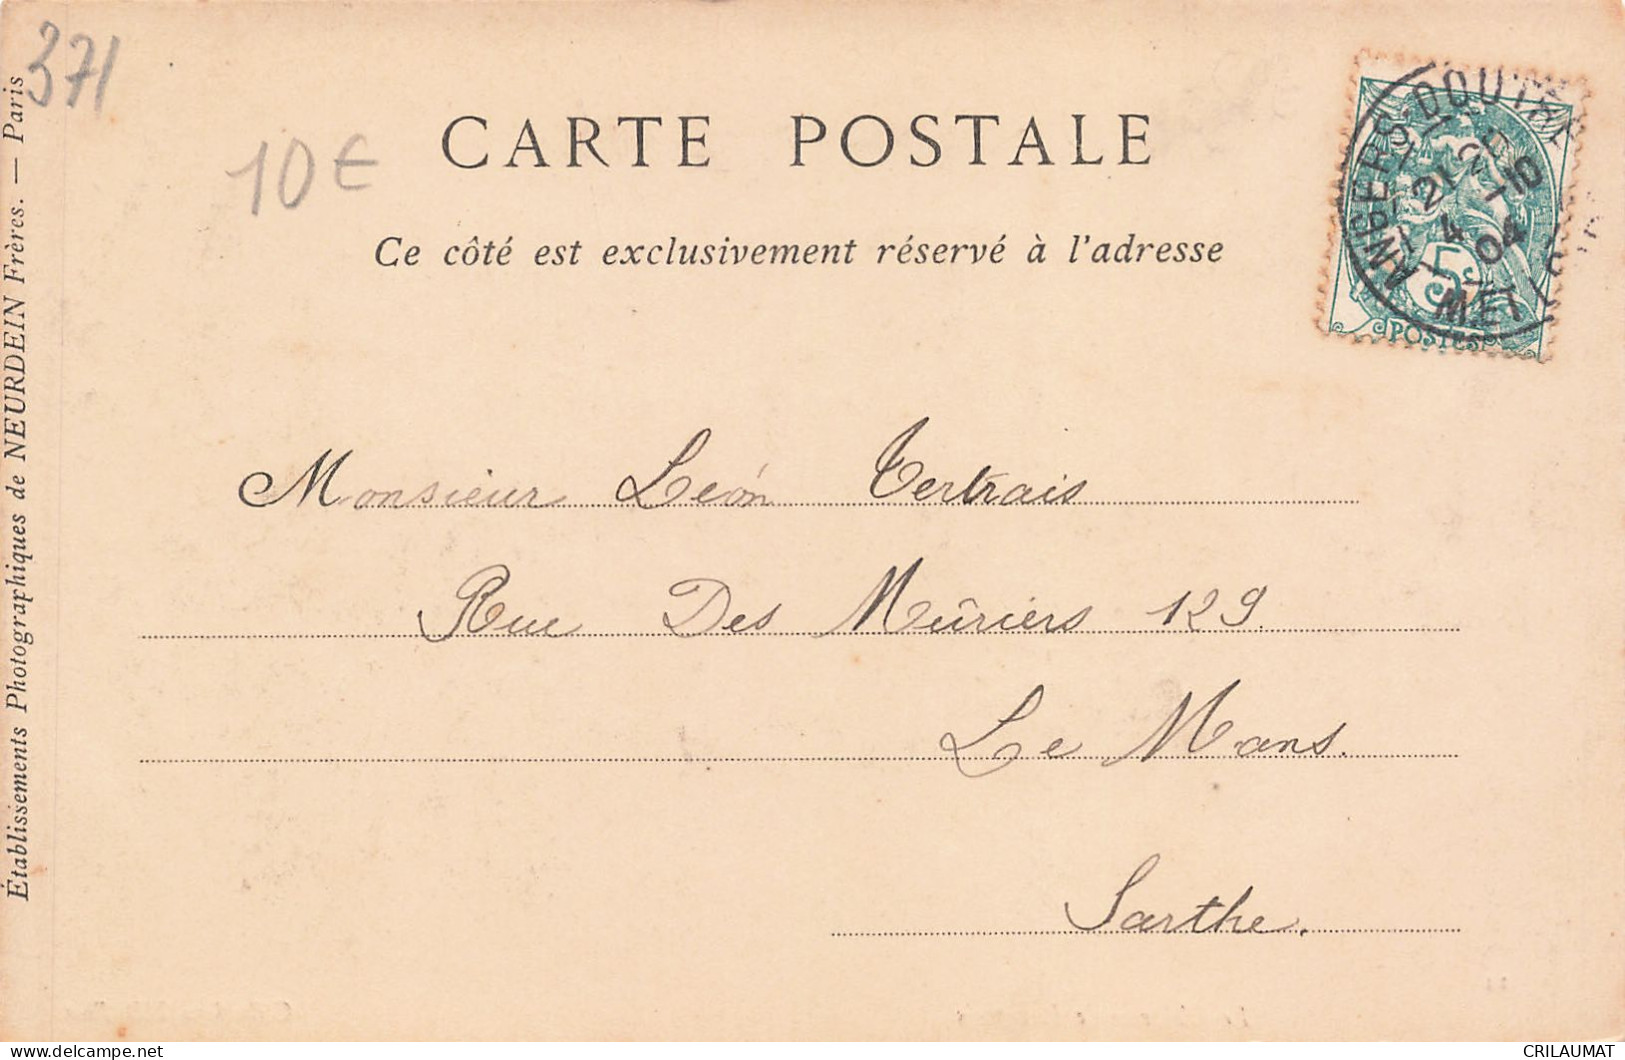 371
10€
CARTE POSTALE
Ce côté est exclusivement réservé à l'adresse
Établissements Photographiques de NEURDEIN Frères. — Paris
ANGERS-DOUTRE
21 -10
4 04
5c
POSTES
Monsieur León Tertrais
Rue Des Mûriers 129.
Le Mans.
Sarthe.
CRILAUMAT